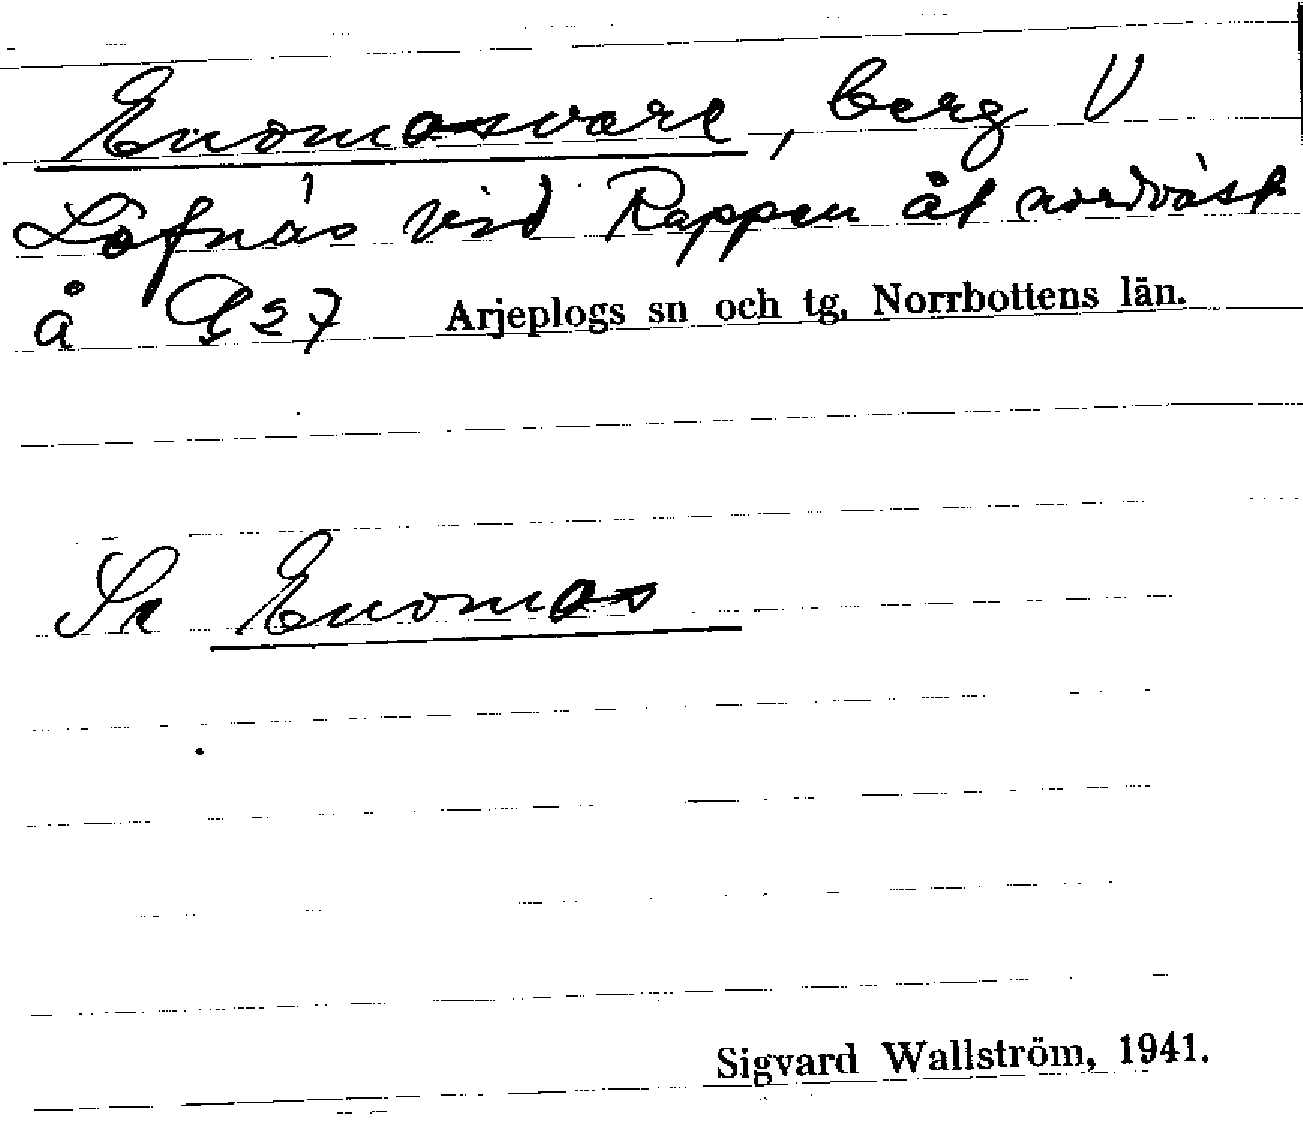 Enomasvare, berg V
Löfnäs vid Rappen åt nordväst
å G27 Arjeplogs sn och tg, Norrbottens län.
Se Enomas
Sigvard Wallström, 1941.